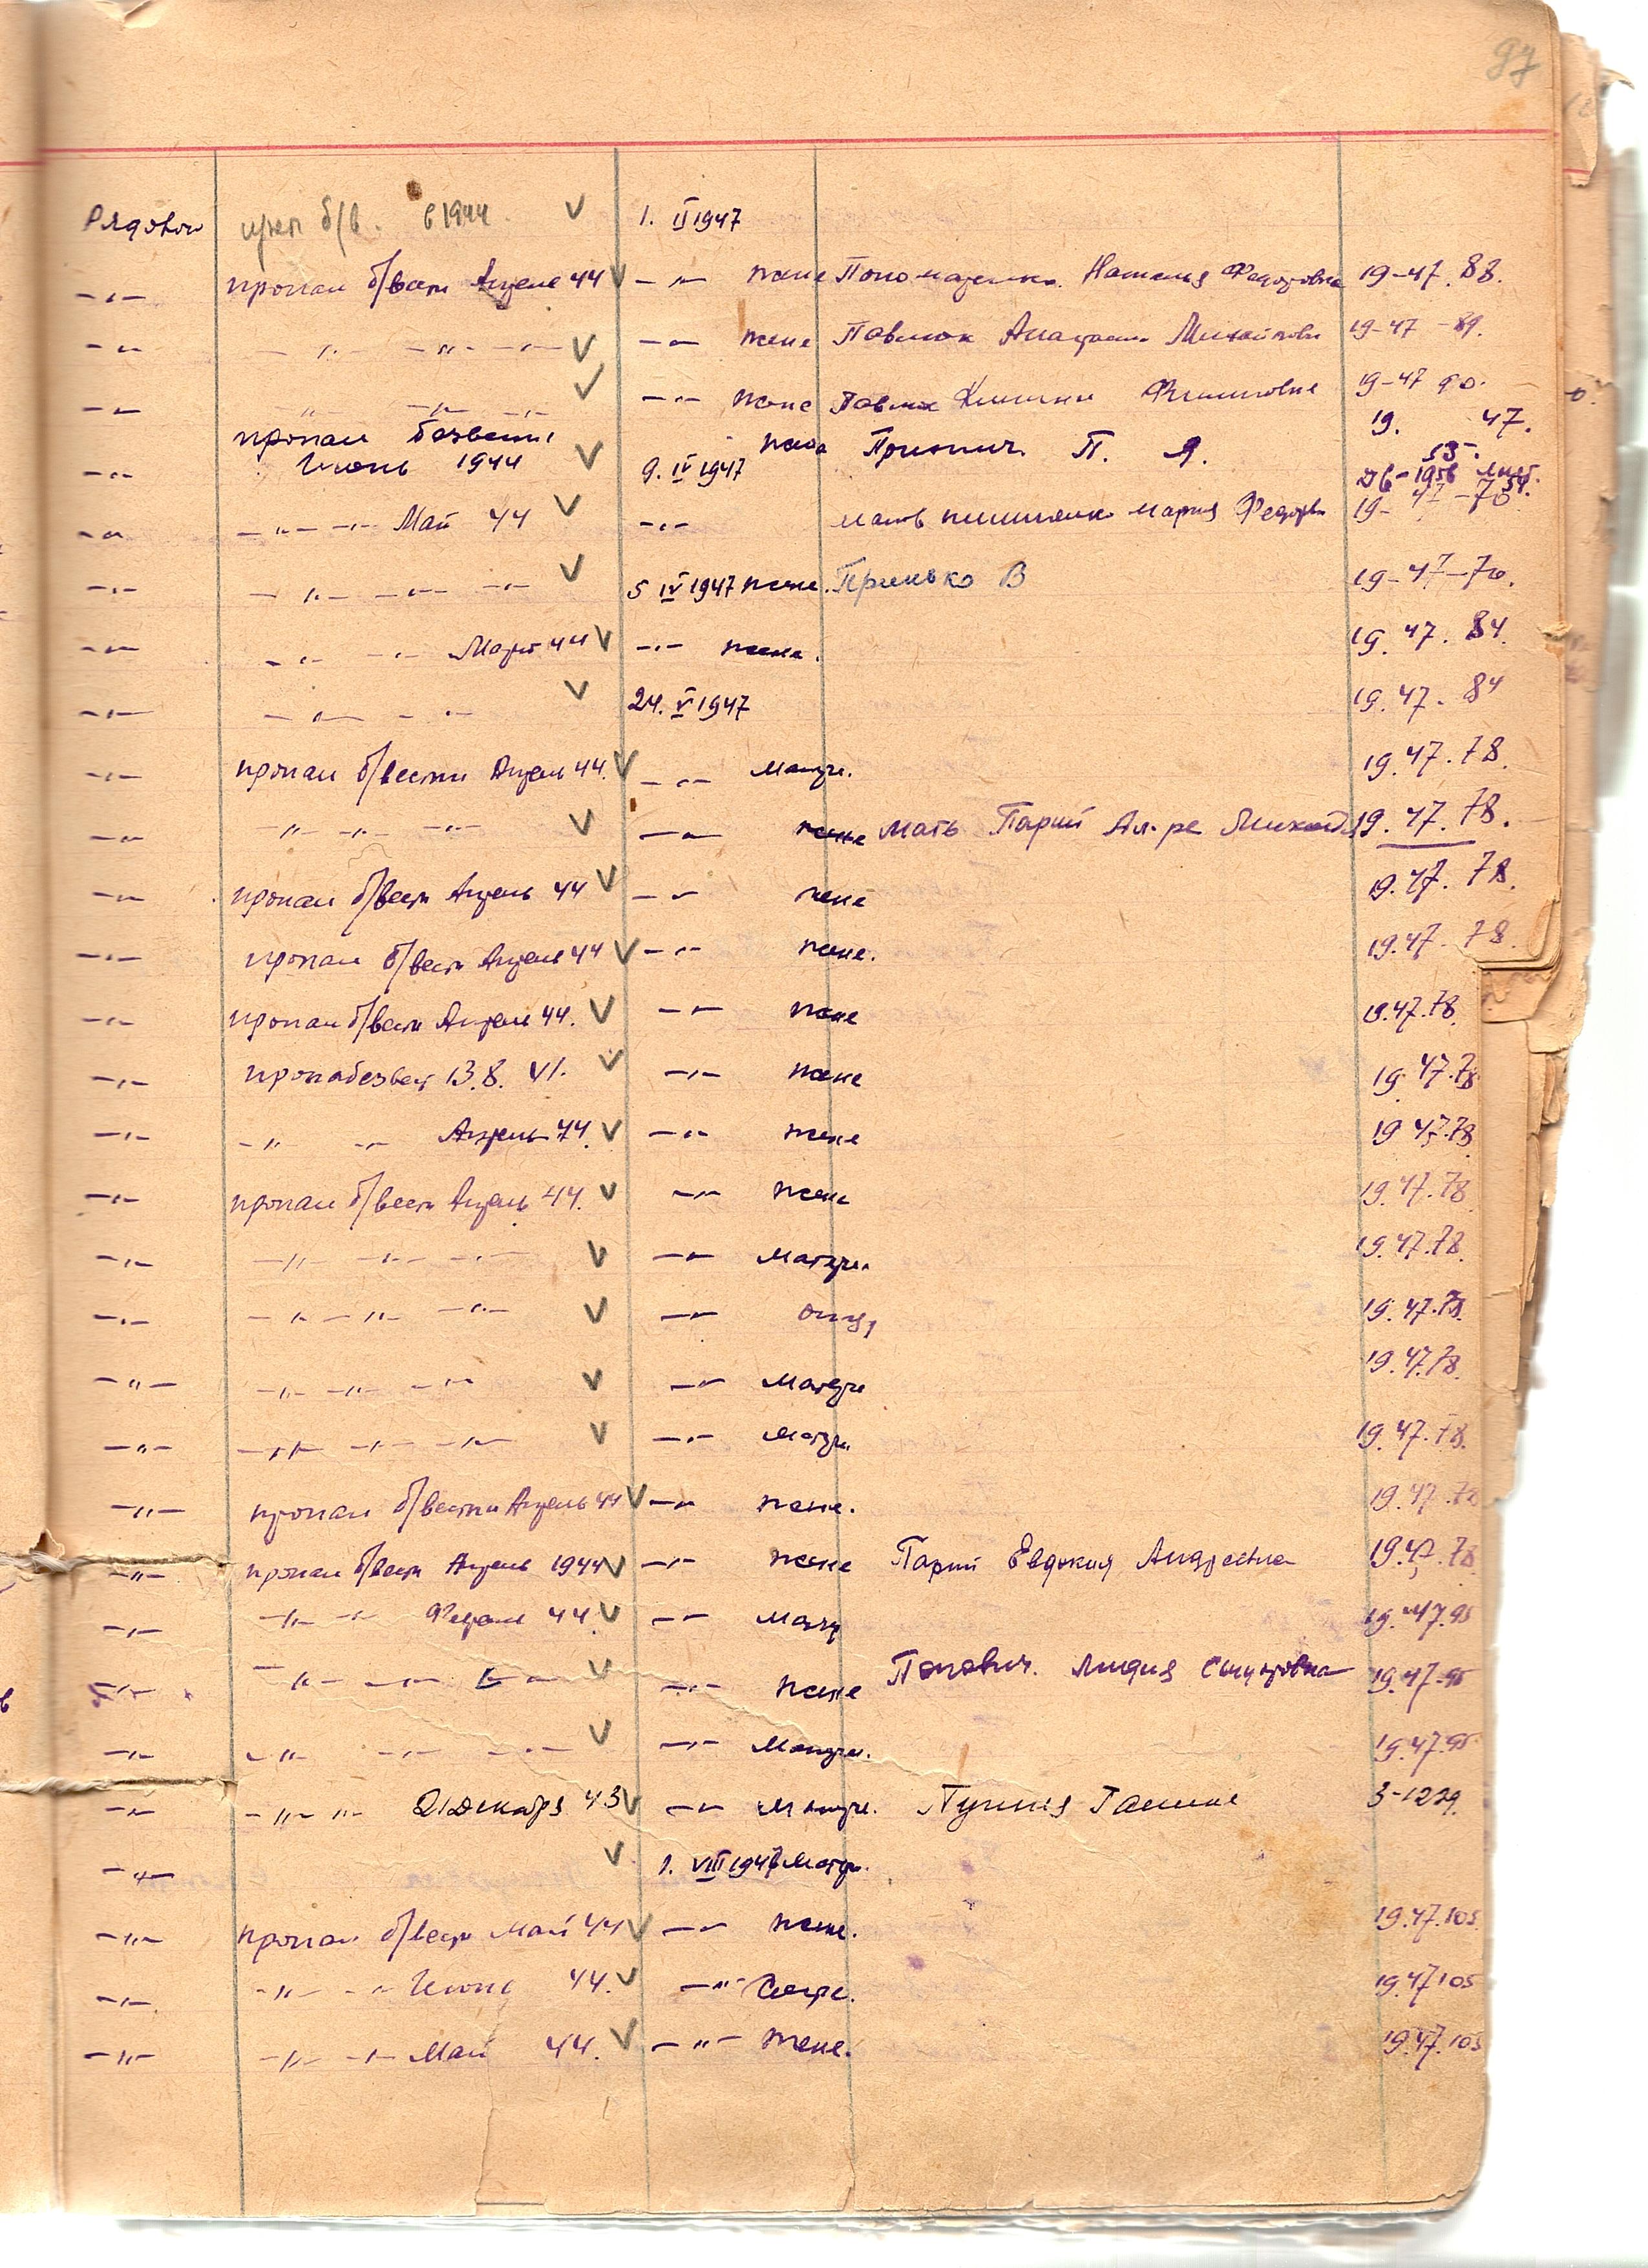 97
Рядовой проп б/в. в 1944 V 1. II 1947
-"- пропал б/вести Апреле 44 V -"- жене Пономаренко Наталия Федоровна 19-47. 88.
-"- -"- -"- -"- V -"- жене Павлюк Анастасии Михайловн 19-47-89.
-"- -"- -"- -"- V -"- жене Павлюк Филипповне 19-47 90.
пропал безвести 19. 47.
-"- Июнь 1944 V 9. IV 1947 жена П. Я. 55.
1956
-"- -"- -"- Май 44 V -"- мать Мария Федоровн 19-47-70.
-"- -"- -"- -"- V 5 IV 1947 жене. Принько В 19-47-70.
-"- -"- -"- Март 44 V -"- жене. 19. 47. 84.
-"- -"- -"- V 24. V 1947 19.47. 84
-"- пропал б/вести Апрель 44. V -"- Матери. 19.47.78.
-"- -"- -"- -"- V -"- жене мать Парий Ал-ре 19.47.78.
-"- пропал б/вести Апрель 44 V -"- жене 19.47.78.
-"- пропал б/вести Апрель 44 V -"- жене. 19.47.78.
-"- пропал б/вести Апрель 44. V -"- жене 19.47.78.
-"- пропабезвест 13.8. 41. V -"- жене 19.47.78
-"- -"- -"- Апрель 44. V -"- жене 19 47.78.
-"- пропал б/вести Апрель 44. V -"- жене 19.47.78
-"- -"- -"- -"- V -"- Матери. 19.47.78.
-"- -"- -"- -"- V -"- отцу 19.47.78.
-"- -"- -"- -"- V -"- Матери 19.47.78.
-"- -"- -"- -"- V -"- Матери. 19.47.78.
-"- пропал б/вести Апрель 44 V -"- жене. 19.47.78
-"- пропал б/вести Апрель 1944 V -"- жене Парий Евдокия Андреевна 19.47.78
-"- -"- -"- Феврале 44. V -"- Матери 19.47.95
-"- -"- -"- -"- V -"- жене Попович. Лидия 19.47-95
-"- -"- -"- -"- V -"- Матери. 19.47.95.
-"- -"- -"- 21 Декабря 43 V -"- Матери. 3-1229.
-"- V 1. VIII 1947 Матери.
-"- пропал б/вести Май 44 V -"- жене. 19.47.105.
-"- -"- -"- Июнь 44. V -"- Сестре. 19.47 105
-"- -"- -"- Май 44. V -"- жене. 19.47.105